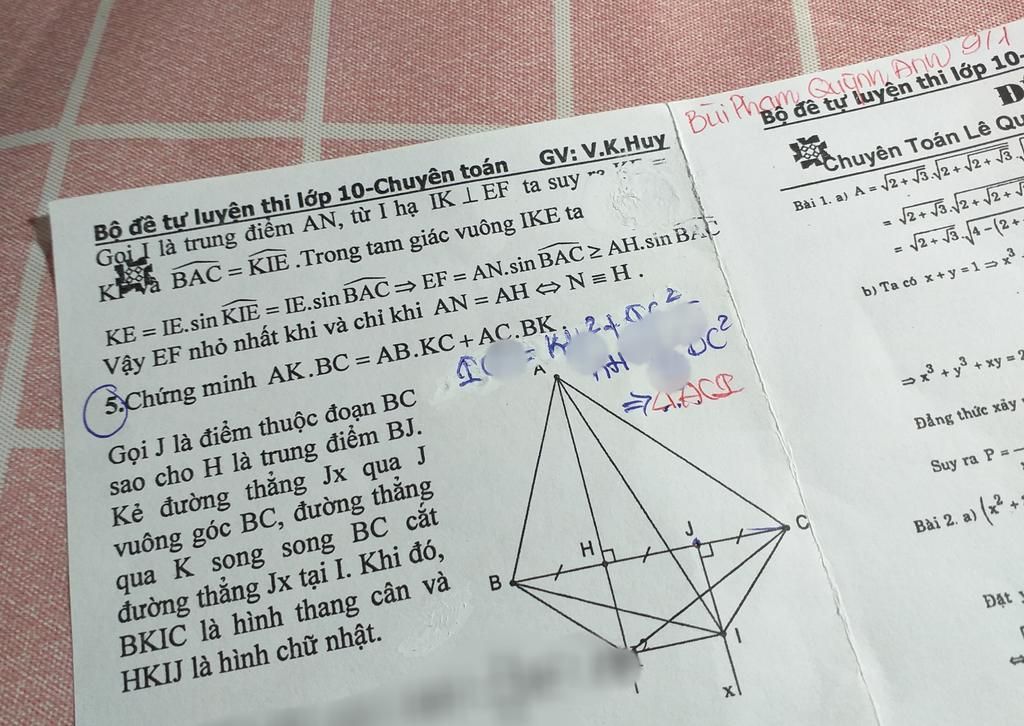 Bộ đề tự luyện thi lớp 10-Chuyên toán GV: V.K.Huy
Gọi I là trung điểm AN, từ I hạ IK ⊥ EF ta suy
và BAC = KIE .Trong tam giác vuông IKE ta
KE = IE.sin KIE = IE.sin BAC ⇒ EF = AN.sin BAC ≥ AH.sin BAC
Vậy EF nhỏ nhất khi và chỉ khi AN = AH ⇔ N ≡ H .
5.Chứng minh AK.BC = AB.KC + AC.BK .
⇒ ΔACI
Gọi J là điểm thuộc đoạn BC
sao cho H là trung điểm BJ.
Kẻ đường thẳng Jx qua J
vuông góc BC, đường thẳng
qua K song song BC cắt
đường thẳng Jx tại I. Khi đó,
BKIC là hình thang cân và
HKIJ là hình chữ nhật.
A
B
H
J
C
I
x
Bùi Phạm Quỳnh Anh 9/1
Bộ đề tự luyện thi lớp 10-
Chuyên Toán Lê Qu
Bài 1. a) A = √2 + √3 . √2 + √2 + √3 .
= √2 + √3 . √2 + √2 +
= √2 + √3 . √4 − (2 +
b) Ta có x + y = 1 ⇒ x³
⇒ x³ + y³ + xy = 2
Đẳng thức xảy
Suy ra P =
Bài 2. a) (x² +
Đặt